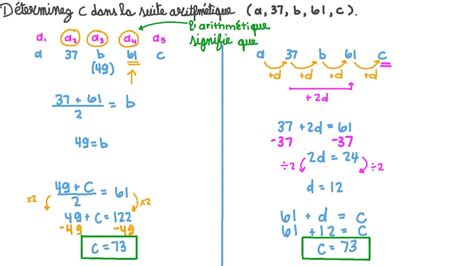 Déterminez c dans la suite aritmétique (a, 37, b, 61, c).
a₁ a₂ a₃ a₄ a₅
a 37 b 61 c
(49)
l'arithmétique
signifie que
37 + 61
2
= b
49 = b
49 + c
2
= 61
x2 x2
49 + c = 122
-49 -49
c = 73
a 37 b 61 c
+d +d +d +d
+2d
37 + 2d = 61
-37 -37
÷2 2d = 24 ÷2
d = 12
61 + d = c
61 + 12 = c
c = 73